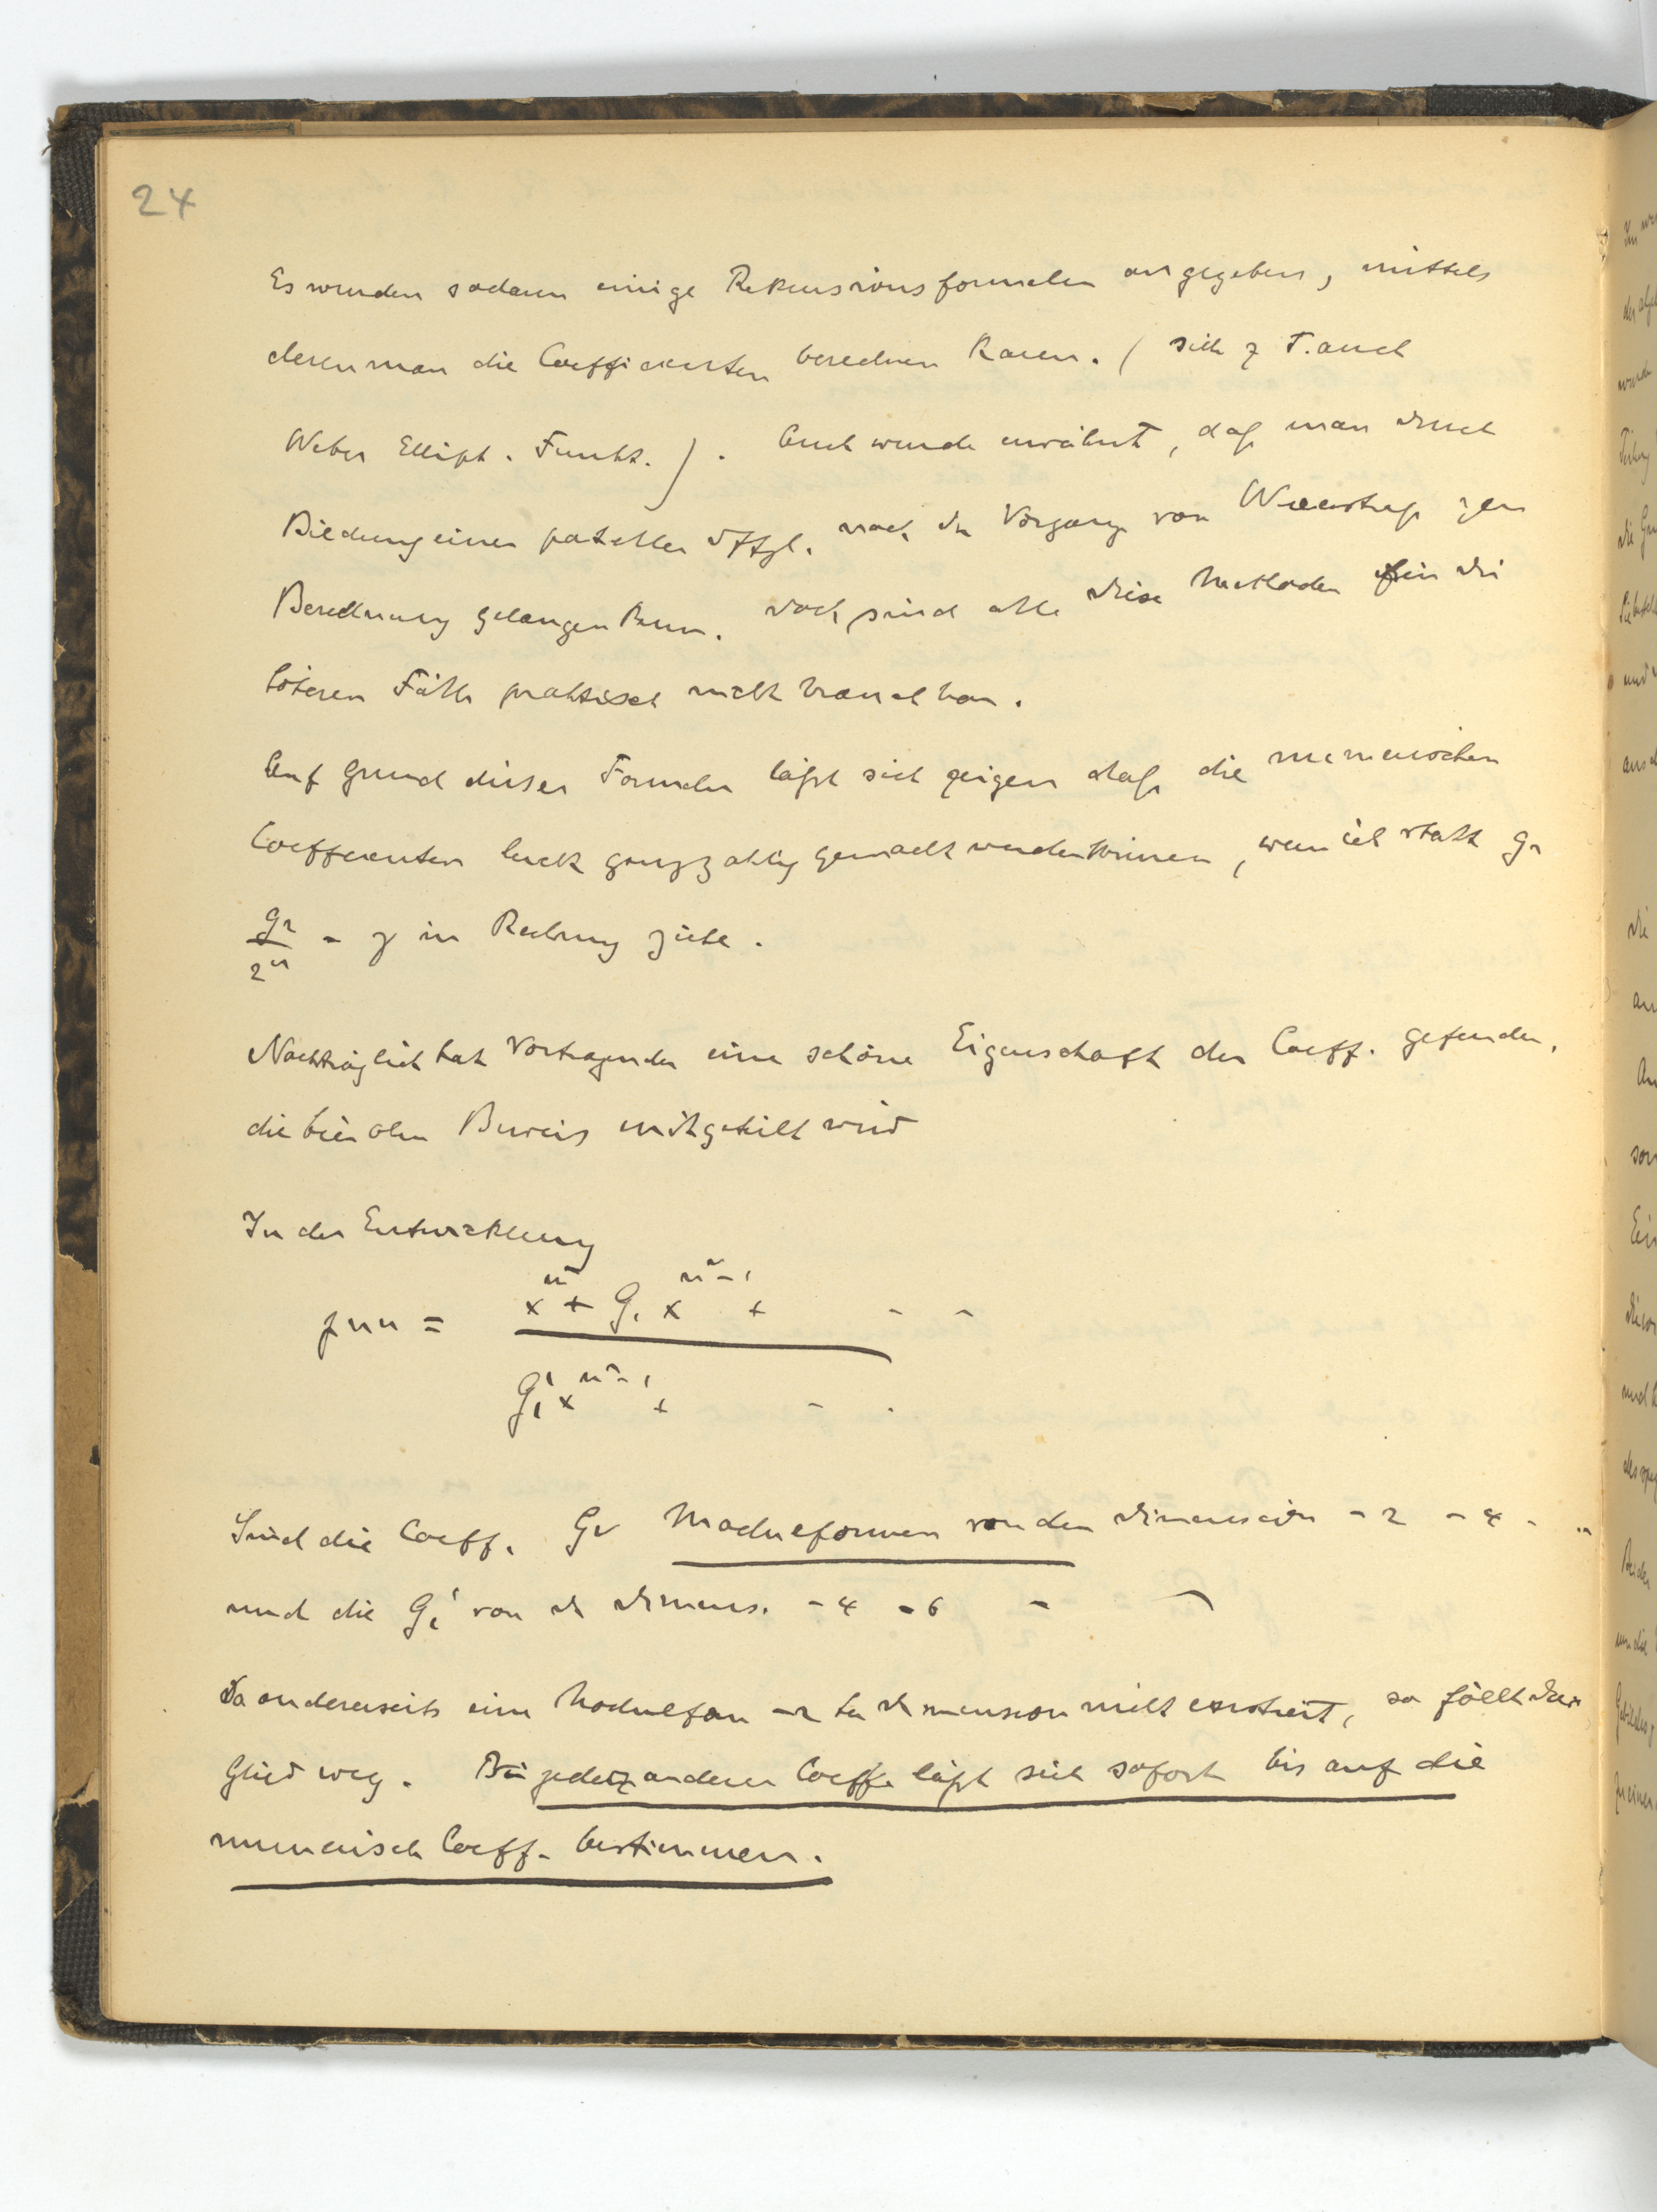 24
Es wurden sodann einige Rekursionsformeln angegeben, mittels
deren man die Coefficienten berechnen kann. ( sieh z T. auch
Weber Ellipt. Funkt. ) . Auch wurde erwähnt, daß man durch
Bildung einer partiellen Dffgl. nach dem Vorgang von Weierstraß zur
Berechnung gelangen kann. Doch sind alle diese Methoden für die
höheren Fälle praktisch nicht brauchbar.
Auf Grund dieser Formeln läßt sich zeigen daß die numerischen
Coefficienten leicht ganzzahlig gemacht werden können, wenn ich statt g₂
g₂/2² = γ in Rechnung ziehe.
Nachträglich hat Vortragender eine schöne Eigenschaft der Coeff. gefunden,
die hier ohne Beweis mitgeteilt wird
In der Entwicklung
℘nu = x^{n²} + G₁ x^{n²-1} + - -
G₁' x^{n²-1} + - .
Sind die Coeff. Gν Modulformen von den Dimension -2 -4 - ..
und die Gi' von der Dimens. -4 -6 - -
Da andererseits eine Modulform -2 ter Dimension nicht existiert, so fällt dies
Glied weg. Bei jedem anderen Coeff. läßt sich sofort bis auf die
numerisch Coeff. bestimmen.